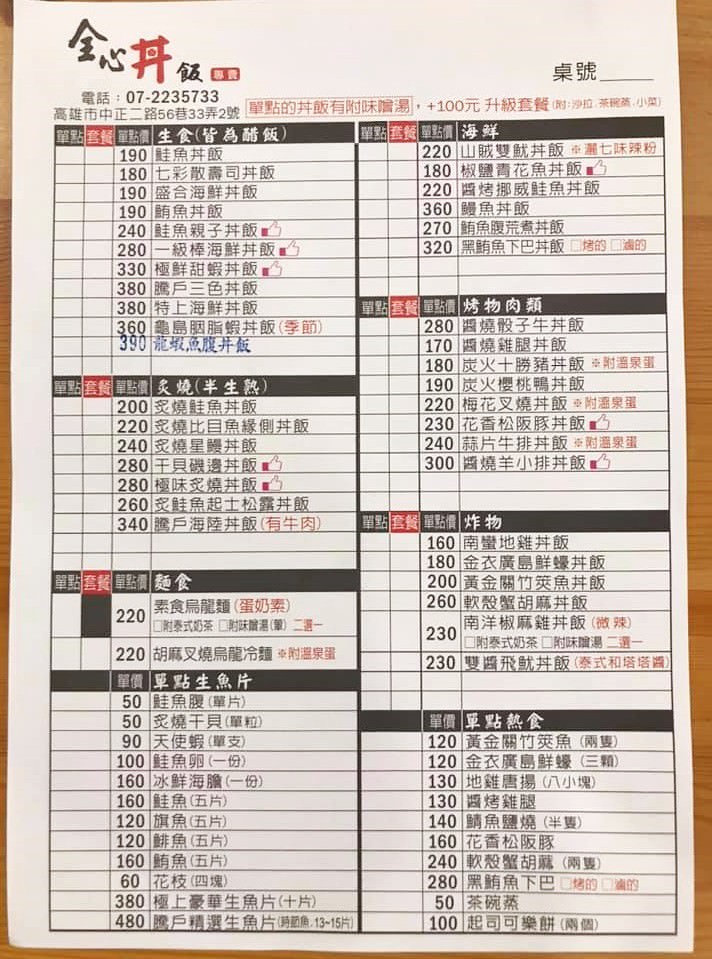 全心丼飯 專賣
桌號
電話：07-2235733
高雄市中正二路56巷33弄2號
單點的丼飯有附味噌湯，+100元 升級套餐 (附:沙拉.茶碗蒸.小菜)
單點 套餐 單點價 生食(皆為醋飯)
190 鮭魚丼飯
180 七彩散壽司丼飯
190 盛合海鮮丼飯
190 鮪魚丼飯
240 鮭魚親子丼飯
280 一級棒海鮮丼飯
330 極鮮甜蝦丼飯
380 騰戶三色丼飯
380 特上海鮮丼飯
360 龜島胭脂蝦丼飯(季節)
390 龍蝦魚腹丼飯
單點 套餐 單點價 炙燒(半生熟)
200 炙燒鮭魚丼飯
220 炙燒比目魚緣側丼飯
240 炙燒星鰻丼飯
280 干貝磯邊丼飯
280 極味炙燒丼飯
260 炙鮭魚起士松露丼飯
340 騰戶海陸丼飯(有牛肉)
單點 套餐 單點價 麵食
220 素食烏龍麵(蛋奶素)
□附泰式奶茶 □附味噌湯(單) 二選一
220 胡麻叉燒烏龍冷麵 ※附溫泉蛋
單價 單點生魚片
50 鮭魚腹(單片)
50 炙燒干貝(單粒)
90 天使蝦(單支)
100 鮭魚卵(一份)
160 冰鮮海膽(一份)
160 鮭魚(五片)
120 旗魚(五片)
120 鯡魚(五片)
160 鮪魚(五片)
60 花枝(四塊)
380 極上豪華生魚片(十片)
480 騰戶精選生魚片(時節魚.13~15片)
單點 套餐 單點價 海鮮
220 山賊雙魷丼飯 ※灑七味辣粉
180 椒鹽青花魚丼飯
220 醬烤挪威鮭魚丼飯
360 鰻魚丼飯
270 鮪魚腹荒煮丼飯
320 黑鮪魚下巴丼飯 □烤的 □滷的
單點 套餐 單點價 烤物肉類
280 醬燒骰子牛丼飯
170 醬燒雞腿丼飯
180 炭火十勝豬丼飯 ※附溫泉蛋
190 炭火櫻桃鴨丼飯
220 梅花叉燒丼飯 ※附溫泉蛋
230 花香松阪豚丼飯
240 蒜片牛排丼飯 ※附溫泉蛋
300 醬燒羊小排丼飯
單點 套餐 單點價 炸物
160 南蠻地雞丼飯
180 金衣廣島鮮蠔丼飯
200 黃金關竹筴魚丼飯
260 軟殼蟹胡麻丼飯
230 南洋椒麻雞丼飯 (微辣)
□附泰式奶茶 □附味噌湯 二選一
230 雙醬飛魷丼飯(泰式和塔塔醬)
單價 單點熱食
120 黃金關竹筴魚 (兩隻)
120 金衣廣島鮮蠔 (三顆)
130 地雞唐揚 (八小塊)
130 醬烤雞腿
140 鯖魚鹽燒 (半隻)
160 花香松阪豚
240 軟殼蟹胡蔴 (兩隻)
280 黑鮪魚下巴 □烤的 □滷的
50 茶碗蒸
100 起司可樂餅 (兩個)